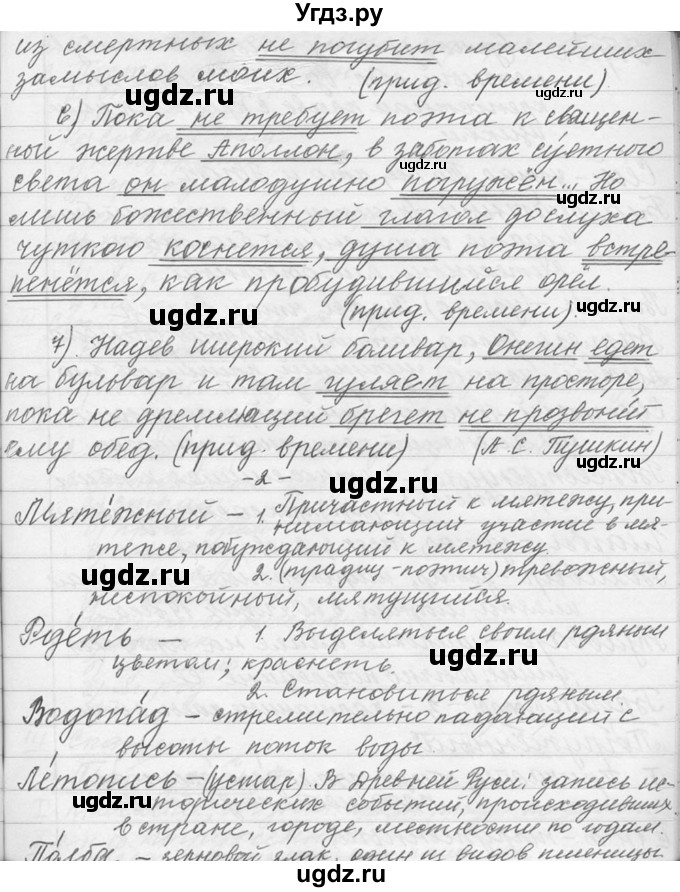 Угдз.ру
из смертных не погубит малейших
замыслов моих. (прид. времени)
ugdz.ru ugdz.ru
6) Пока не требует поэта к священ-
ной жертве Аполлон, в заботах суетного
света он малодушно погружён... Но
ugdz.ru
лишь божественный глагол до слуха
чуткого коснется, душа поэта встре-
пенётся, как пробудившийся орёл.
ugdz.ru
(прид. времени).
ugdz.ru
7) Надев широкий боливар, Онегин едет
на бульвар и там гуляет на просторе,
пока недремлющий брегет не прозвонит
ему обед. (прид. времени) (А. С. Пушкин)
-2-
Мяте́жный – 1. Причастный к мятежу, при-
нимающий участие в мя-
теже, побуждающий к мятежу.
ugdz.ru ugdz.ru
2. (традиц-поэтич) тревожный,
неспокойный, мятущийся.
Рде́ть – 1. Выделяться своим рдяным
цветом; краснеть.
ugdz.ru
2. Становиться рдяным.
Водопа́д – стремительно падающий с
высоты поток воды.
ugdz.ru
Ле́топись – (устар). В Древней Руси: запись ис-
торических событий, происходивших
в стране, городе, местности по годам.
ugdz.ru ugdz.ru
– зерновой злак, один из видов пшеницы